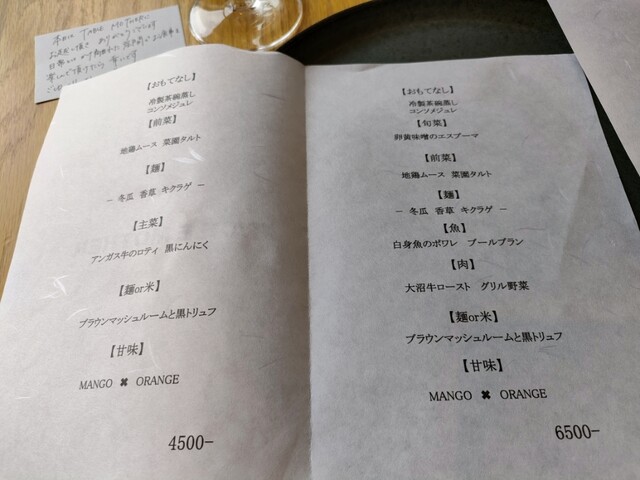 本日は TABLE
お越し頂き ありがとうございます
【おもてなし】
冷製茶碗蒸し
コンソメジュレ
【前菜】
地鶏ムース 菜園タルト
【麺】
− 冬瓜 香草 キクラゲ −
【主菜】
アンガス牛のロティ 黒にんにく
【麺or米】
ブラウンマッシュルームと黒トリュフ
【甘味】
MANGO ✖ ORANGE
4500−
【おもてなし】
冷製茶碗蒸し
コンソメジュレ
【旬菜】
卵黄味噌のエスプーマ
【前菜】
地鶏ムース 菜園タルト
【麺】
− 冬瓜 香草 キクラゲ −
【魚】
白身魚のポワレ ブールブラン
【肉】
大沼牛ロースト グリル野菜
【麺or米】
ブラウンマッシュルームと黒トリュフ
【甘味】
MANGO ✖ ORANGE
6500−